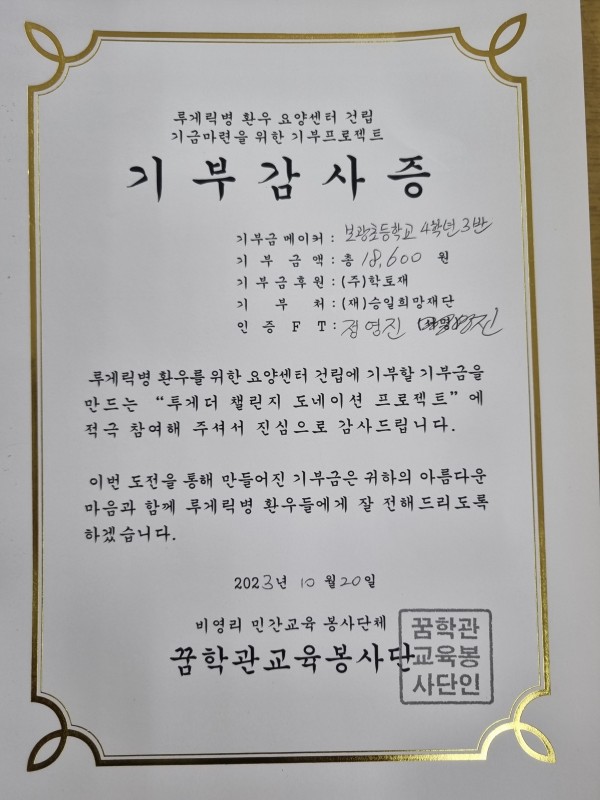 루게릭병 환우 요양센터 건립
기금마련을 위한 기부프로젝트
기부감사증
기부금 메이커 : 보광초등학교 4학년 3반
기 부 금 액 : 총 18,600 원
기부금후원 : (주)학토재
기 부 처 : (재)승일희망재단
인 증 F T : 정영진
루게릭병 환우를 위한 요양센터 건립에 기부할 기부금을
만드는 “투게더 챌린지 도네이션 프로젝트” 에
적극 참여해 주셔서 진심으로 감사드립니다.
이번 도전을 통해 만들어진 기부금은 귀하의 아름다운
마음과 함께 루게릭병 환우들에게 잘 전해드리도록
하겠습니다.
2023년 10 월 20일
비영리 민간교육 봉사단체
꿈학관교육봉사단
꿈학관
교육봉
사단인